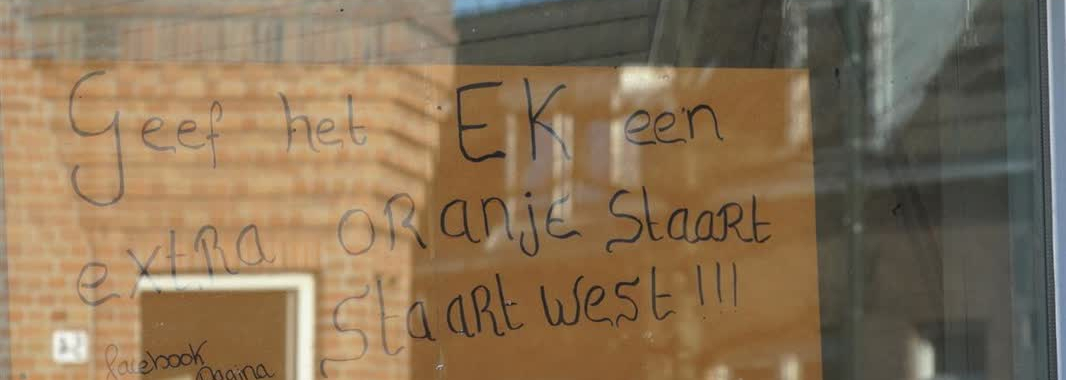 Geef het EK een
extRa oRanje StaaRt
StaaRt West!!!
facebook
pagina